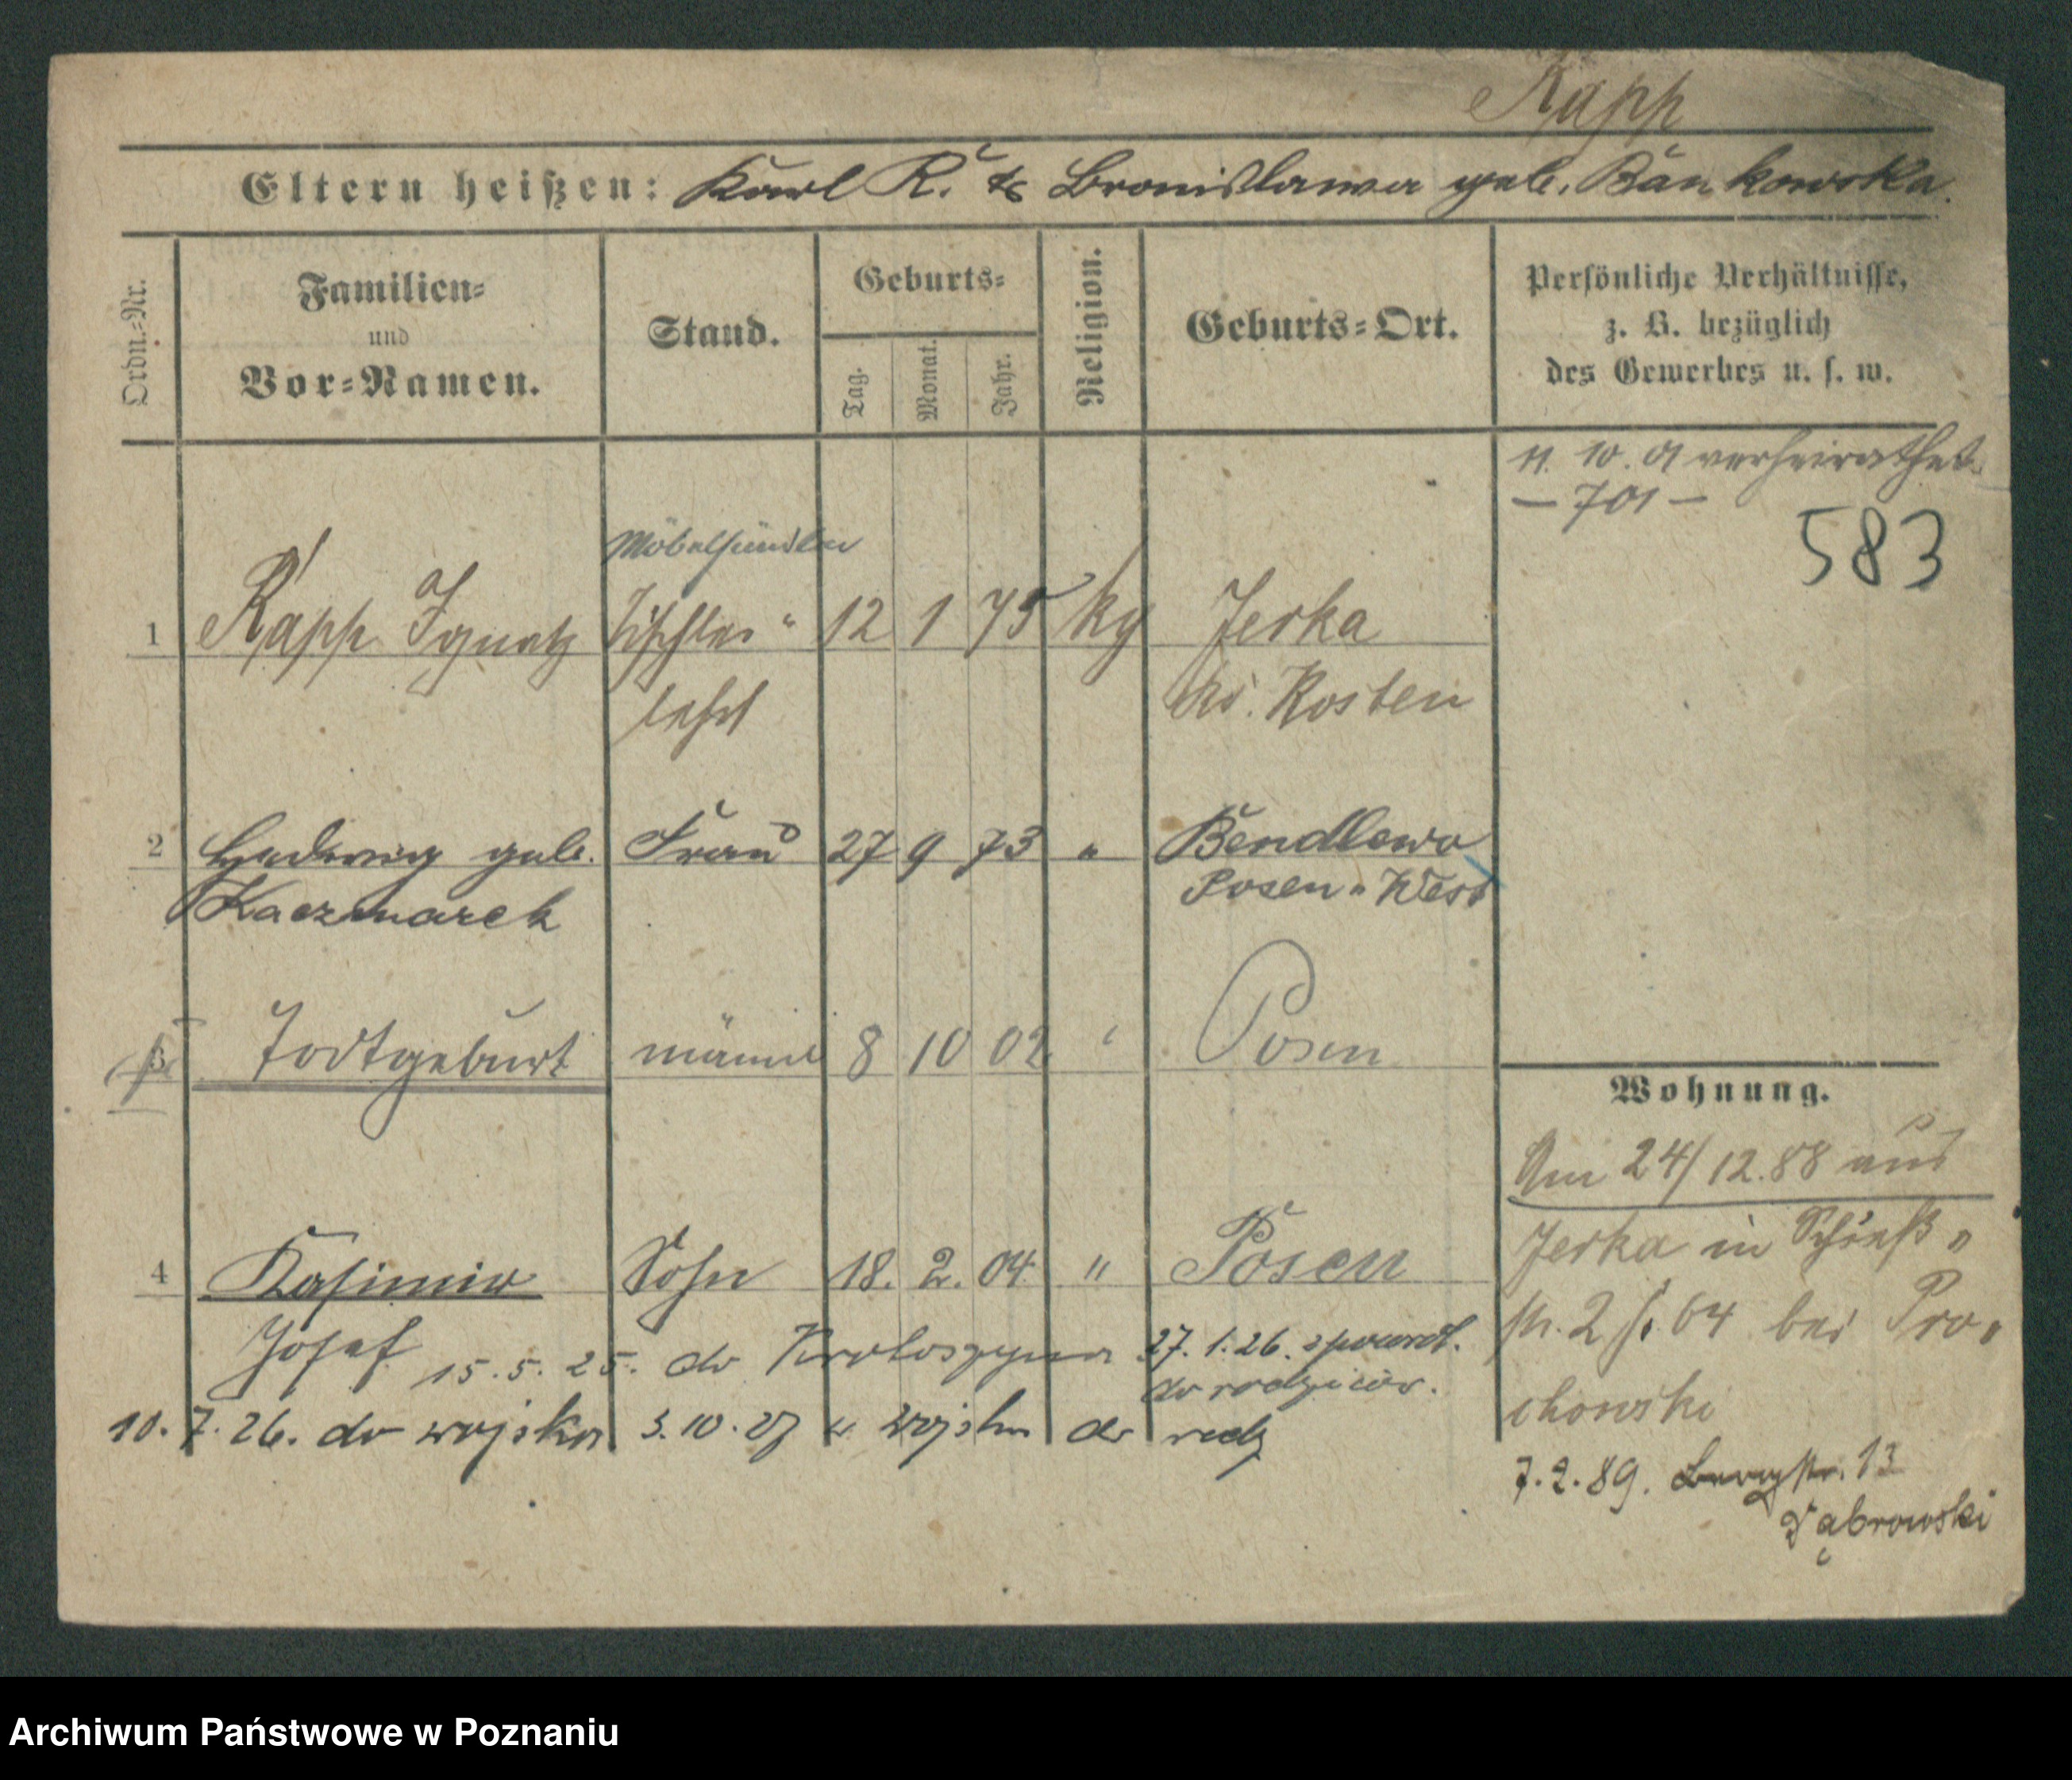 Rapp
Eltern heißen: Karl R. & Bronislawa geb. Bankowska.
Ordn.-Nr.
Familien-
und
Vor-Namen.
Stand.
Geburts-
Tag.
Monat.
Jahr.
Religion.
Geburts-Ort.
Persönliche Verhältnisse,
z. B. bezüglich
des Gewerbes u. s. w.
11. 10. 01 verheirathet
— 701 —
583
Möbelhändler
1 Rapp Ignatz Tischler- 12 1 75 kg Jerka
lehrl Kr. Kosten
2 Hedwig geb. Frau 27 9 73 " Bendlewo
Kaczmarek Posen-West
3 Todtgeburt männl 8 10 02 " Posen
Wohnung.
Am 24/12.88 aus
Jerka in
4 Kasimir Sohn 18. 2. 04 " Posen
str. 2 b. 64 bei Pro-
chowski
Josef 15.5.25. do Krotoszyna 27.1.26. z powrot.
do rodziców.
10.7.26. do wojska 3.10.27 z wojska do rodz
7.2.89. 13
Dąbrowski
Archiwum Państwowe w Poznaniu